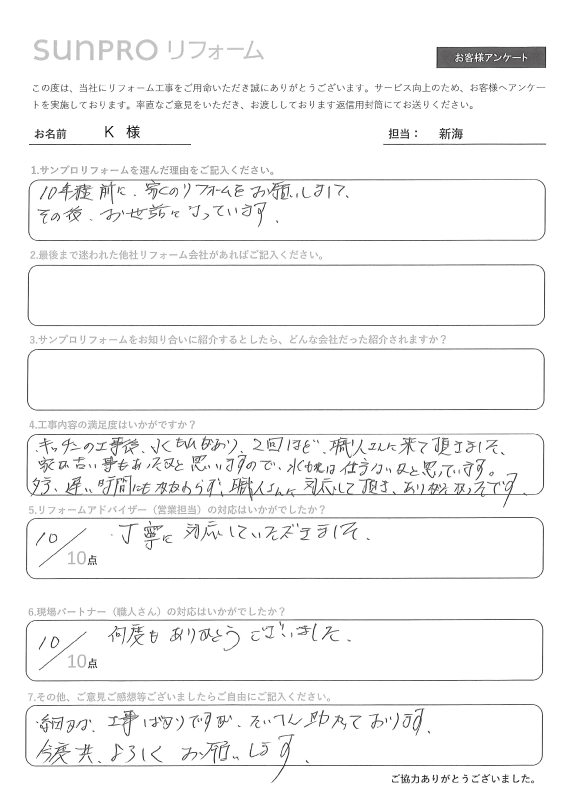 SUNPRO リフォーム
お客様アンケート
この度は、当社にリフォーム工事をご用命いただき誠にありがとうございます。サービス向上のため、お客様へアンケー
トを実施しております。率直なご意見をいただき、お渡ししております返信用封筒にてお送りください。
お名前 K 様 担当： 新海
1.サンプロリフォームを選んだ理由をご記入ください。
10年程前に、家のリフォームをお願いしまして、
その後、お世話になっています。
2.最後まで迷われた他社リフォーム会社があればご記入ください。
3.サンプロリフォームをお知り合いに紹介するとしたら、どんな会社だった紹介されますか？
4.工事内容の満足度はいかがですか？
キッチンの工事後、水もれがあり、2回ほど、職人さんに来て頂きました、
家が古い事もあったかと思いますので、水もれは仕方ないかと思っています。
夕方、遅い時間にもかかわらず、職人さんに対応して頂き、ありがたかったです。
5.リフォームアドバイザー（営業担当）の対応はいかがでしたか？
10/10点 丁寧に対応していただきました、
6.現場パートナー（職人さん）の対応はいかがでしたか？
10/10点 何度もありがとうございました、
7.その他、ご意見ご感想等ございましたらご自由にご記入ください。
細かな、工事ばかりですが、たいへん助かっております、
今度共、よろしくお願いします、
ご協力ありがとうございました。